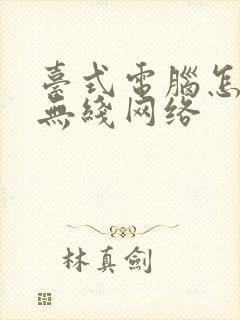 臺式電腦怎
無綫网络
林真劍